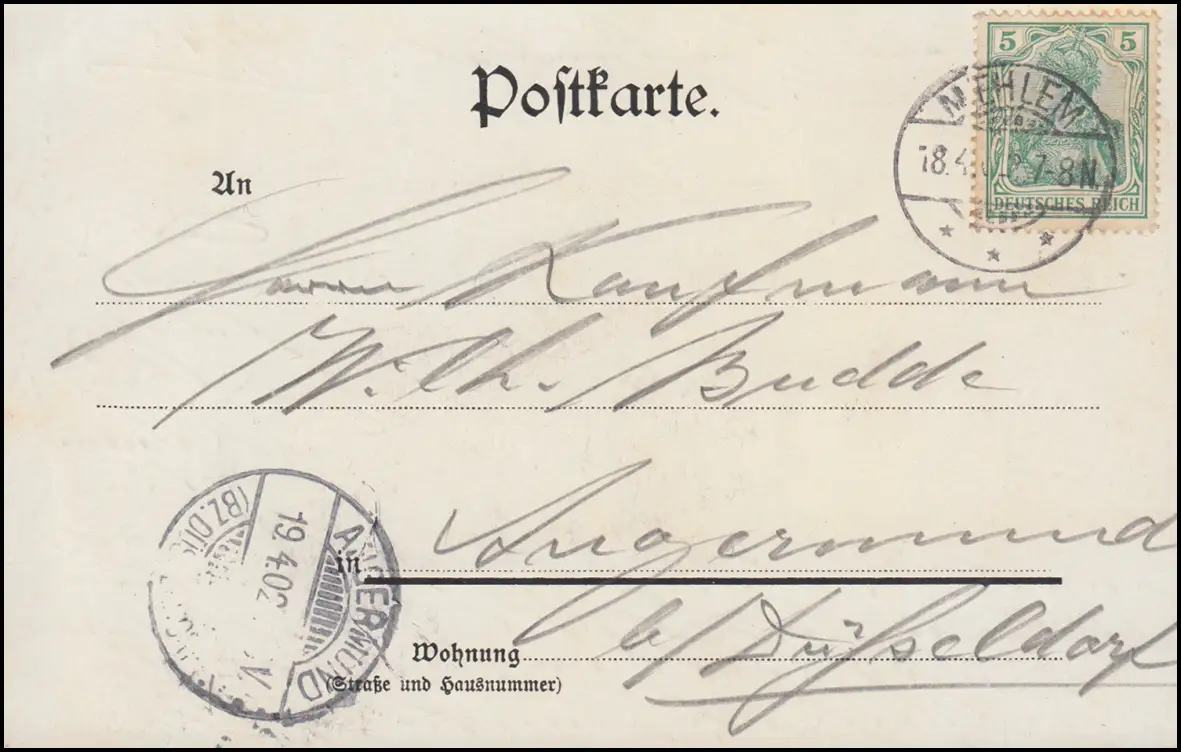 5 5
DEUTSCHES REICH
MEHLEM
18.4. 7-8N.
Postkarte.
An
Herrn Kaufmann
Wilh. Budde
in Angermund
b/ Düsseldorf
Wohnung
(Straße und Hausnummer)
ANGERMUND
19.4.02
(BZ. DÜ